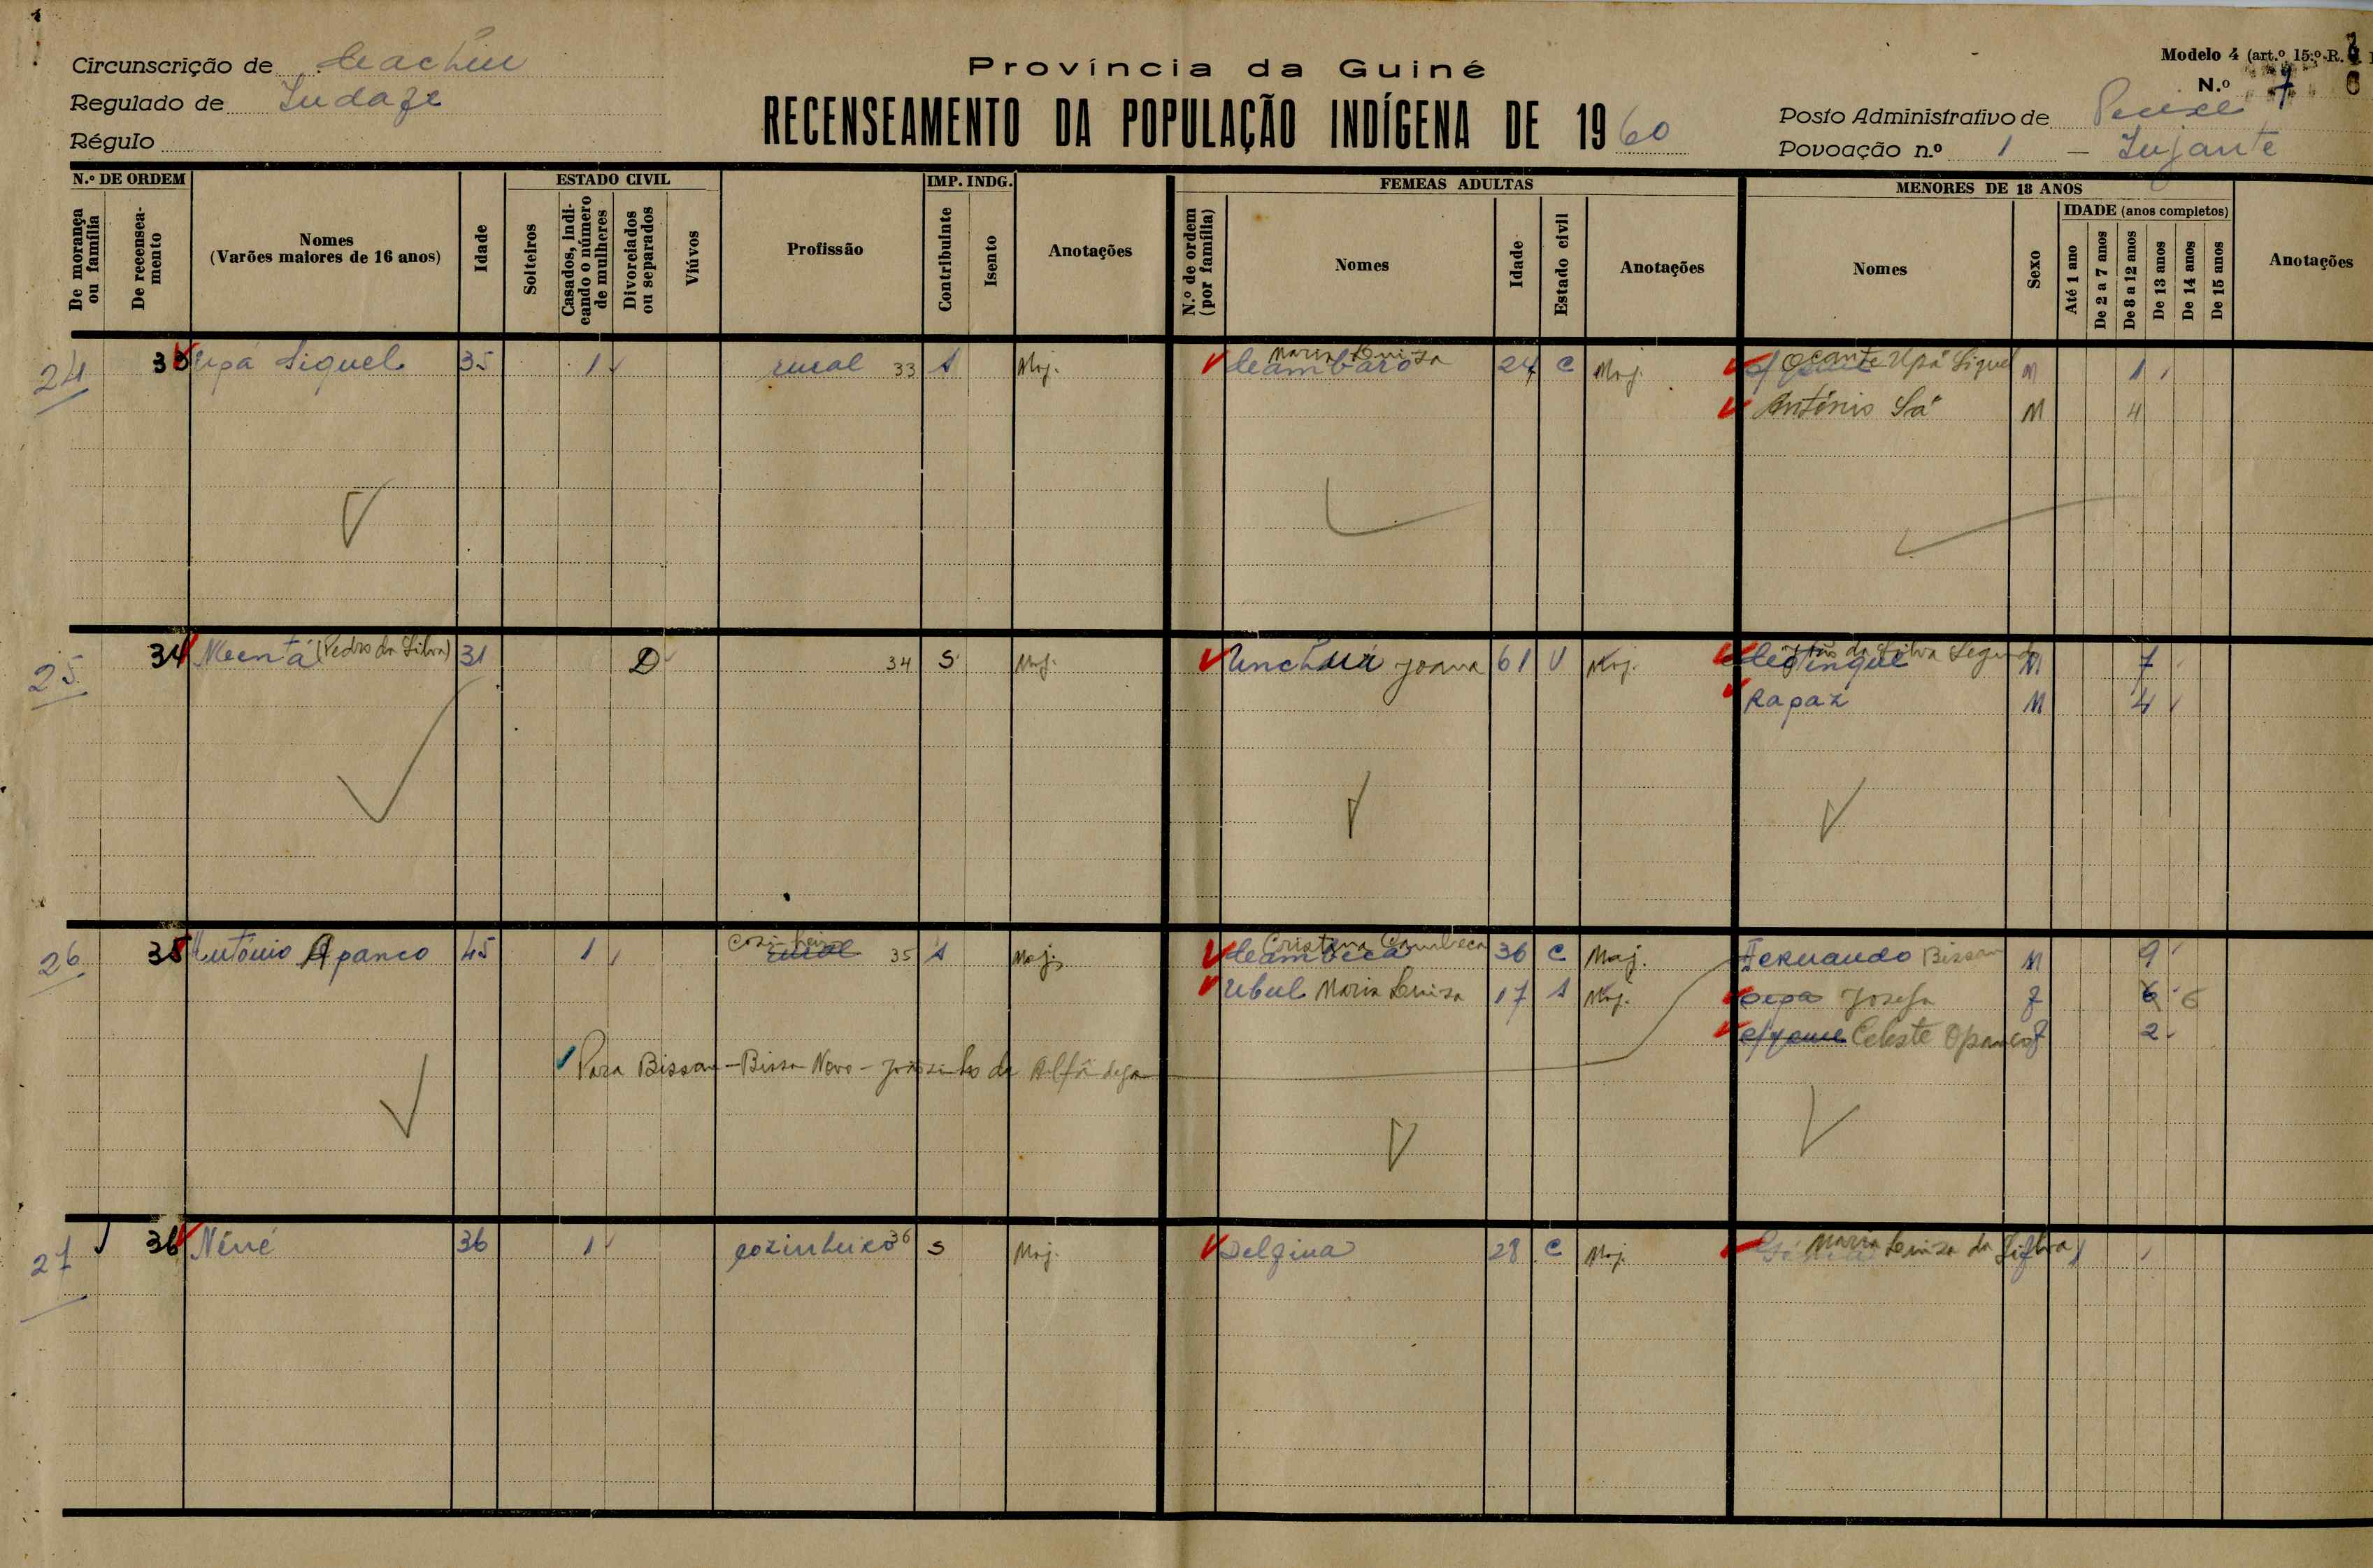 Circunscrição de Cacheu
Regulado de
Régulo
Província da Guiné
RECENSEAMENTO DA POPULAÇÃO INDÍGENA DE 1960
Modelo 4 (art.º 15.º R.
N.º 7
Posto Administrativo de
Povoação n.º 1 —
N.º DE ORDEM
De morança ou família
De recenseamento
Nomes
(Varões maiores de 16 anos)
Idade
ESTADO CIVIL
Solteiros
Casados, indicando o número de mulheres
Divorciados ou separados
Viúvos
Profissão
IMP. INDG.
Contribuinte
Isento
Anotações
FEMEAS ADULTAS
N.º de ordem (por família)
Nomes
Idade
Estado civil
Anotações
MENORES DE 18 ANOS
Nomes
Sexo
IDADE (anos completos)
Até 1 ano
De 2 a 7 anos
De 8 a 12 anos
De 13 anos
De 14 anos
De 15 anos
Anotações
24 33 Upá Siquel 35 1 rural 33 S Maj. Maria Luiza 24 C Maj. Ocante Upá Siquel M 1
António Sá M 4
25 34 (Pedro da Silva) 31 D 34 S Maj. Joana 61 V Maj. da Silva Segunda M 7
Rapaz M 4
26 35 António Apanco 45 1 cozinheiro rural 35 S Maj. Cristina Cambeca 36 C Maj. Fernando Bissau M 9
Ubul Maria Luiza 17 S Maj. Josefa F 6 6
Celeste Opanco F 2
Para Bissau - Bissa Novo - Joãosinho da Alfândega
27 36 Néné 36 1 cozinheiro 36 S Maj. Delfina 28 C Maj. Maria Luiza da Silva F 1